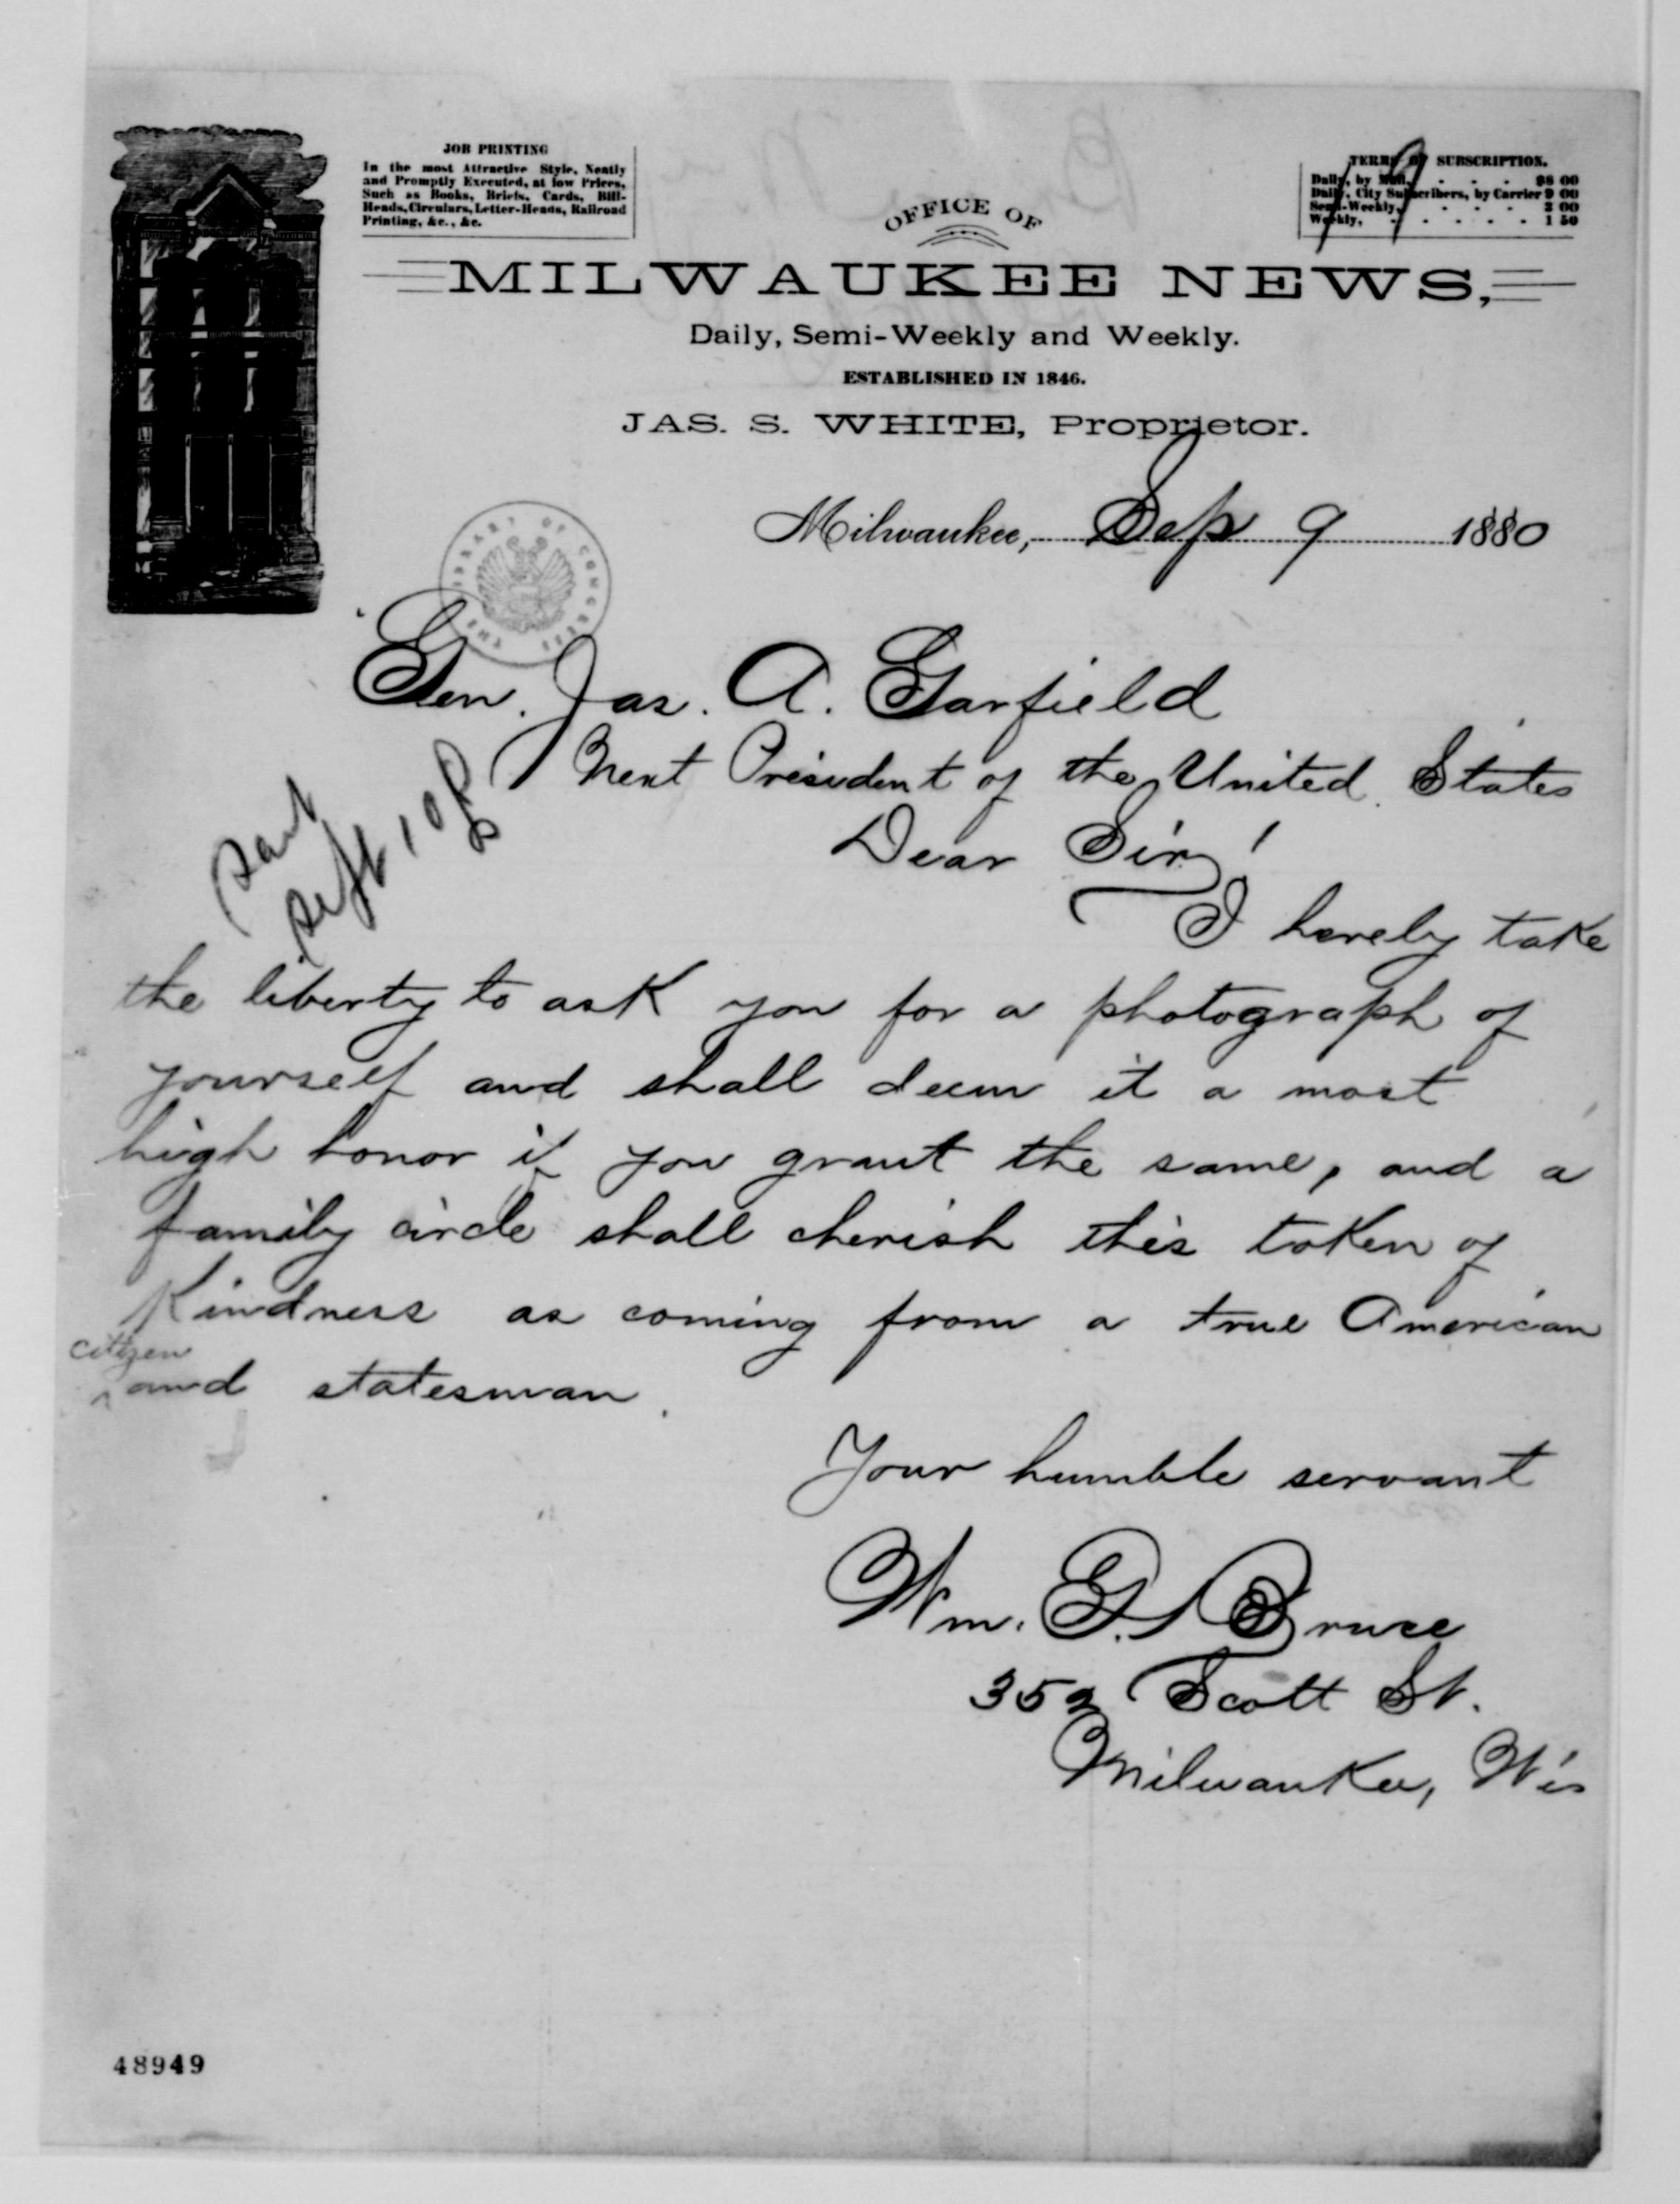 JOB PRINTING
In the most Attractive Style, Neatly
and Promptly Executed, at low Prices,
Such as Books, Briefs, Cards, Bill-
Heads, Circulars, Letter-Heads, Railroad
Printing, &c., &c.
TERMS OF SUBSCRIPTION.
Daily, by Mail, - - - $8 00
Daily, City Subscribers, by Carrier 9 00
Semi-Weekly, - - - - 3 00
Weekly, - - - - - 1 50
OFFICE OF
MILWAUKEE NEWS,
Daily, Semi-Weekly and Weekly.
ESTABLISHED IN 1846.
JAS. S. WHITE, Proprietor.
Milwaukee, Sep 9 1880
THE LIBRARY OF CONGRESS
Gen. Jas. A. Garfield
Next President of the United States
Dear Sir!
Sept 10
I hereby take
the liberty to ask you for a photograph of
yourself and shall deem it a most
high honor if you grant the same, and a
family circle shall cherish this token of
Kindness as coming from a true American
citizen
and statesman.
Your humble servant
Wm. G. Bruce
352 Scott St.
Milwaukee, Wis
48949